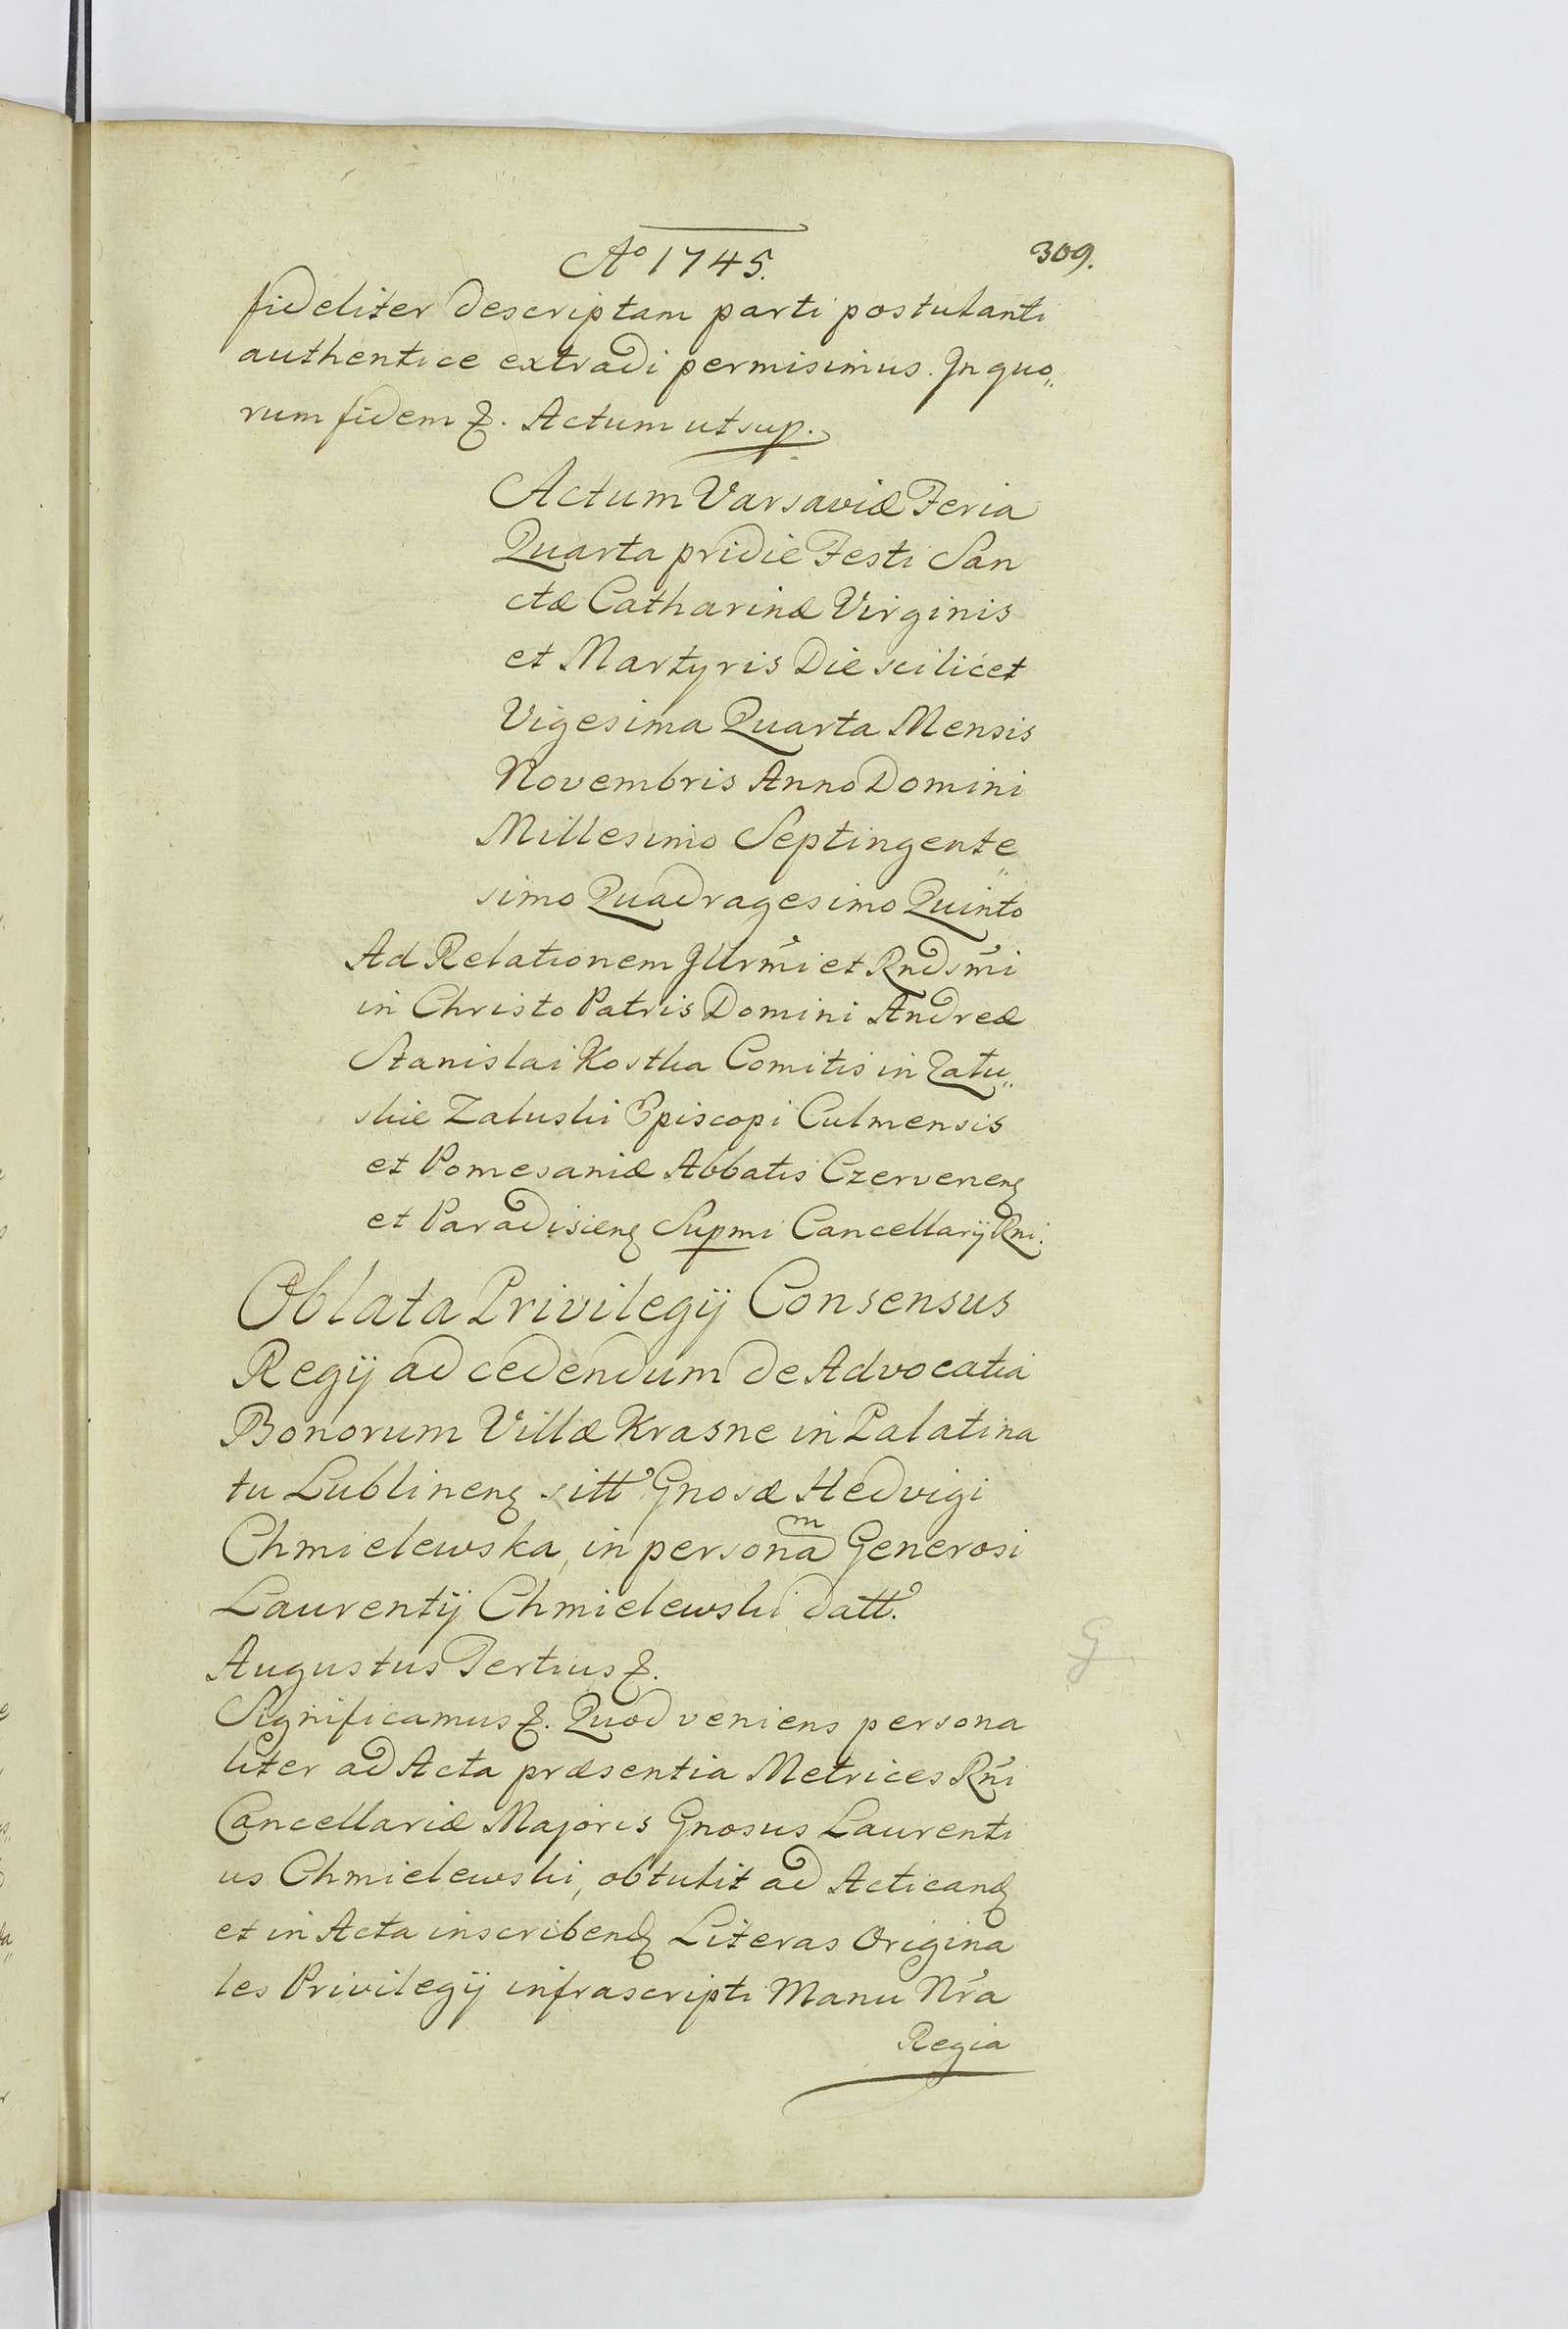 Aº 1745. 309.
fideliter descriptam parti postulanti
authentice extradi permisimus. In quo„
rum fidem &. Actum ut sup.
Actum Varsaviæ Feria
Quarta pridie Festi San
ctæ Catharinæ Virginis
et Martyris Die scilicet
Vigesima Quarta Mensis
Novembris Anno Domini
Millesimo Septingente„
simo Quadragesimo Quinto
Ad Relationem Illrm̃i et Rndsm̃i
in Christo Patris Domini Andreæ
Stanislai Kostka Comitis in Zalu„
skie Zaluski Episcopi Culmensis
et Pomesaniæ Abbatis Czervenenꝫ
et Paradisienꝫ Supmi Cancellarij Rni.
Oblata Privilegij Consensus
Regij ad cedendum de Advocatia
Bonorum Villæ Krasne in Palatina
tu Lublinenꝫ sitt' Gnosæ Hedvigi
Chmielewska, in personam Generosi
Laurentij Chmielewski datt'.
Augustus Tertius &.
Significamus &. Quod veniens persona
liter ad Acta præsentia Metrices Rñi
Cancellariæ Majoris Gnosus Laurenti
us Chmielewski, obtulit ad Acticandꝫ
et in Acta inscribendꝫ Literas Origina
les Privilegij infrascripti Manu Nr̃a
Regia
G